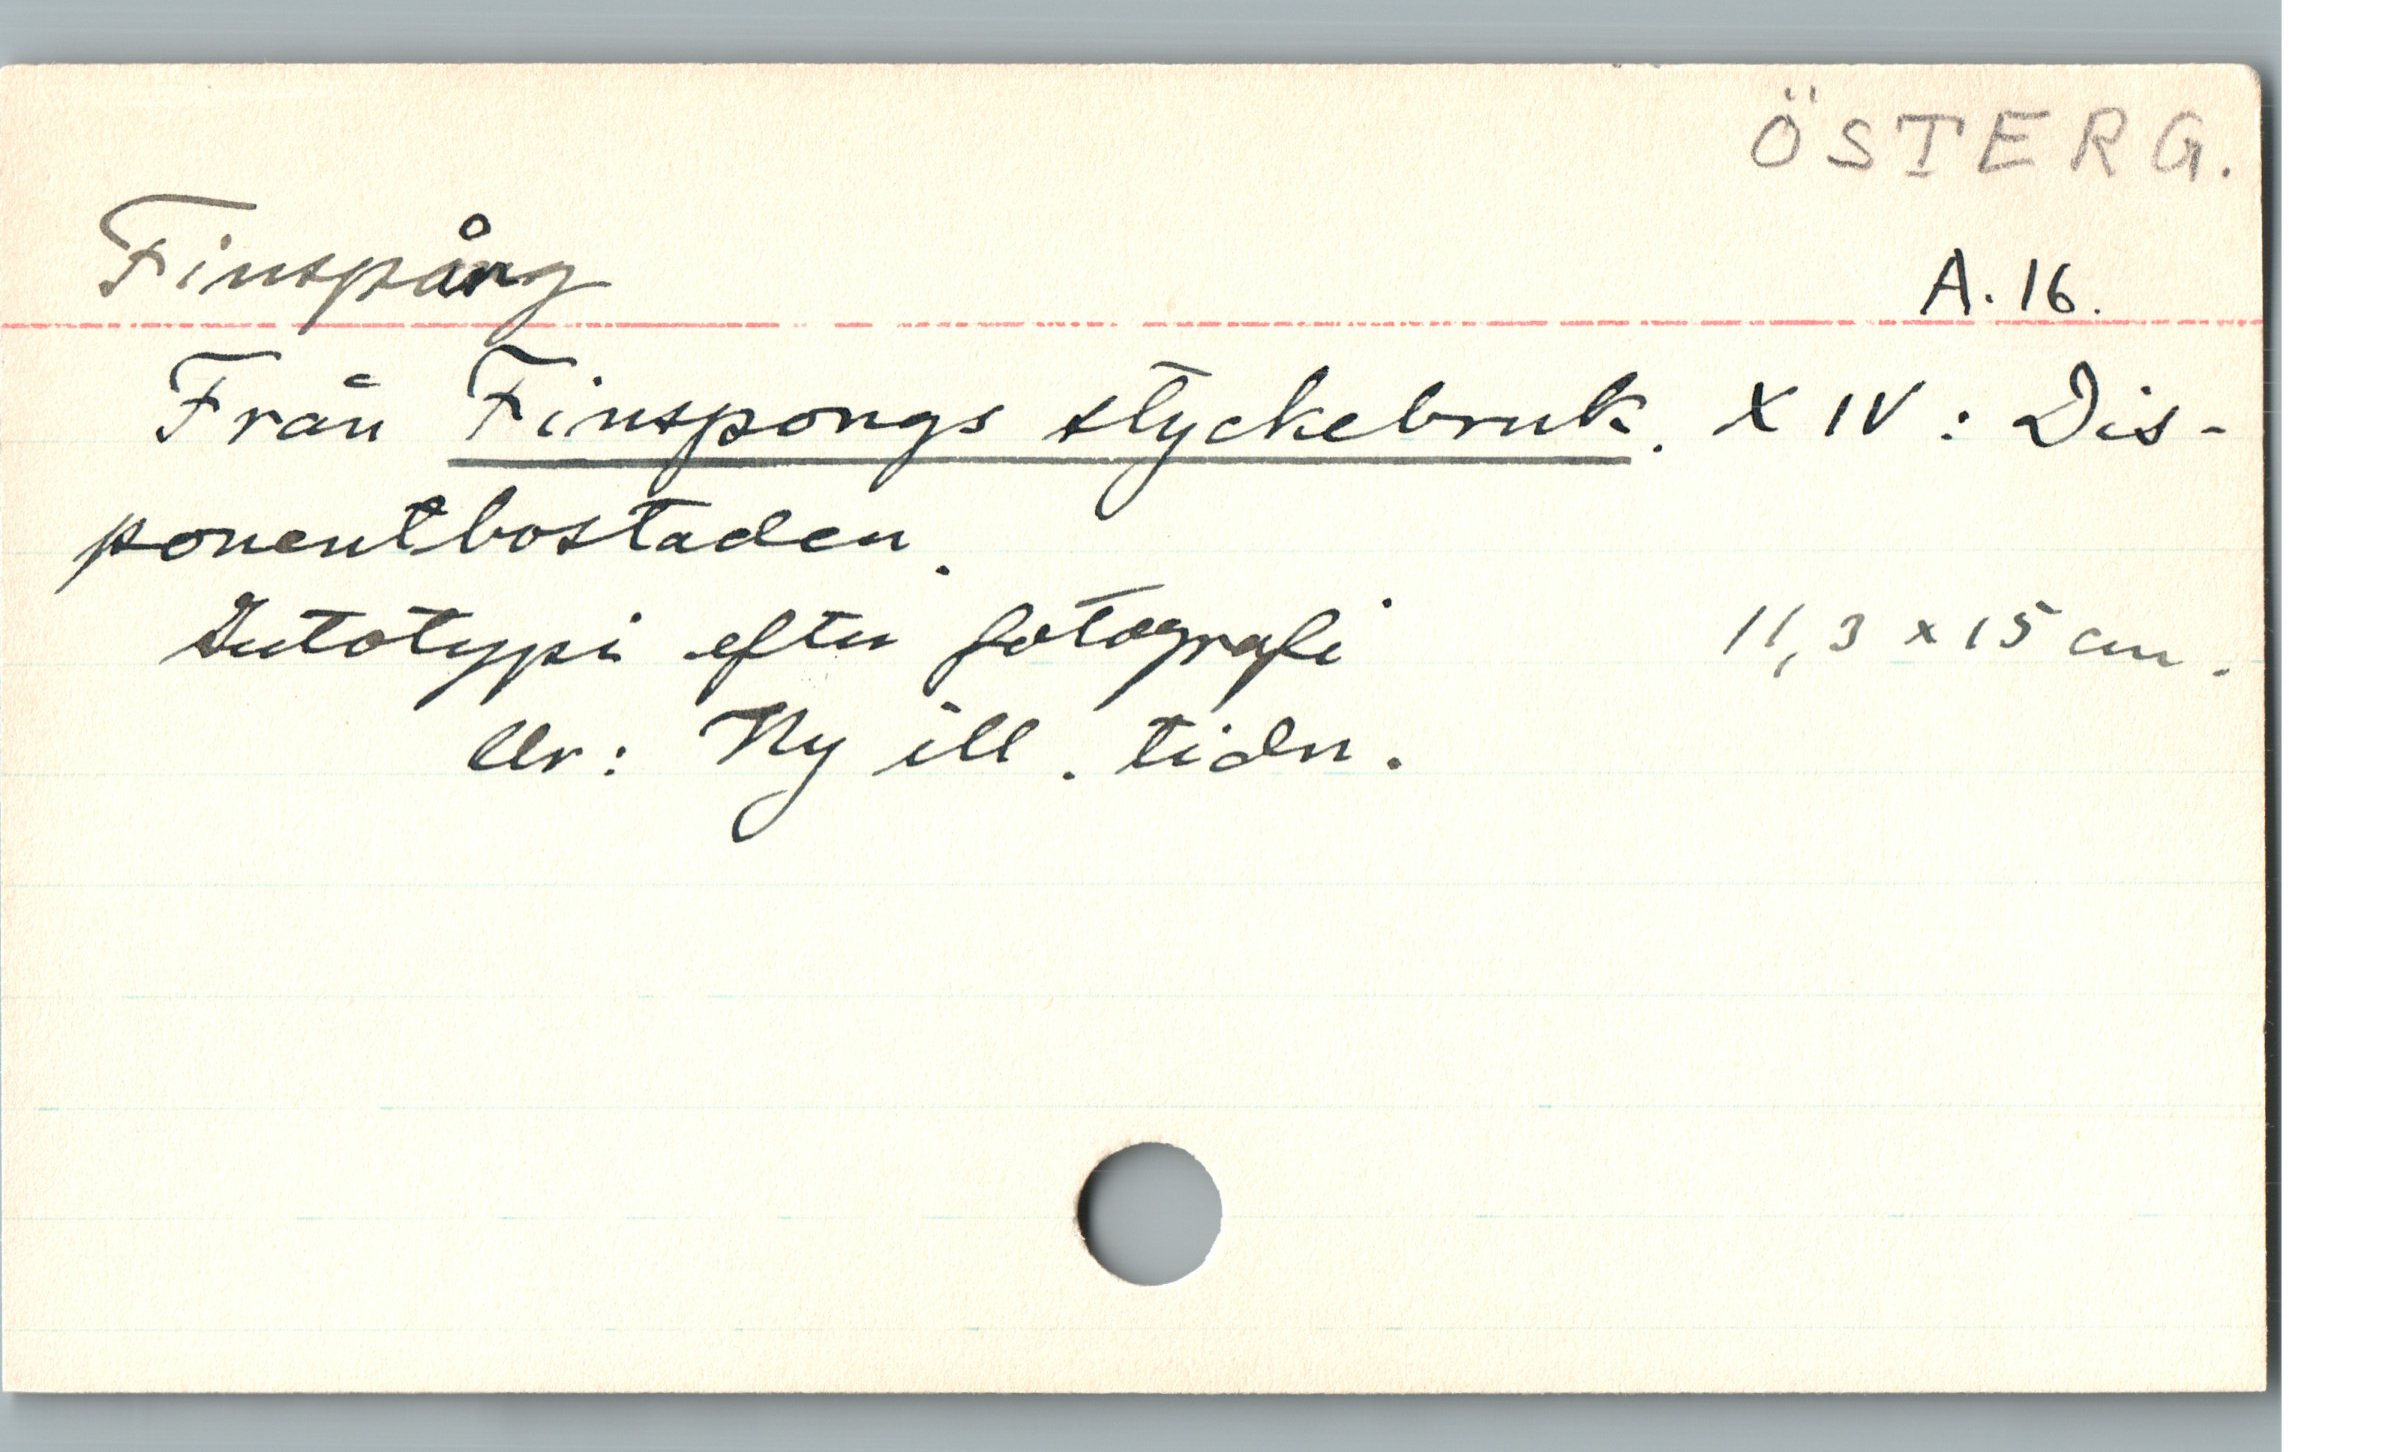 ÖSTERG.
Finspång A. 16.
Från Finspongs styckebruk. XIV: Dis-
ponentbostaden.
Autotypi efter fotografi 11,3 x 15 cm.
Ur: Ny ill. tidn.